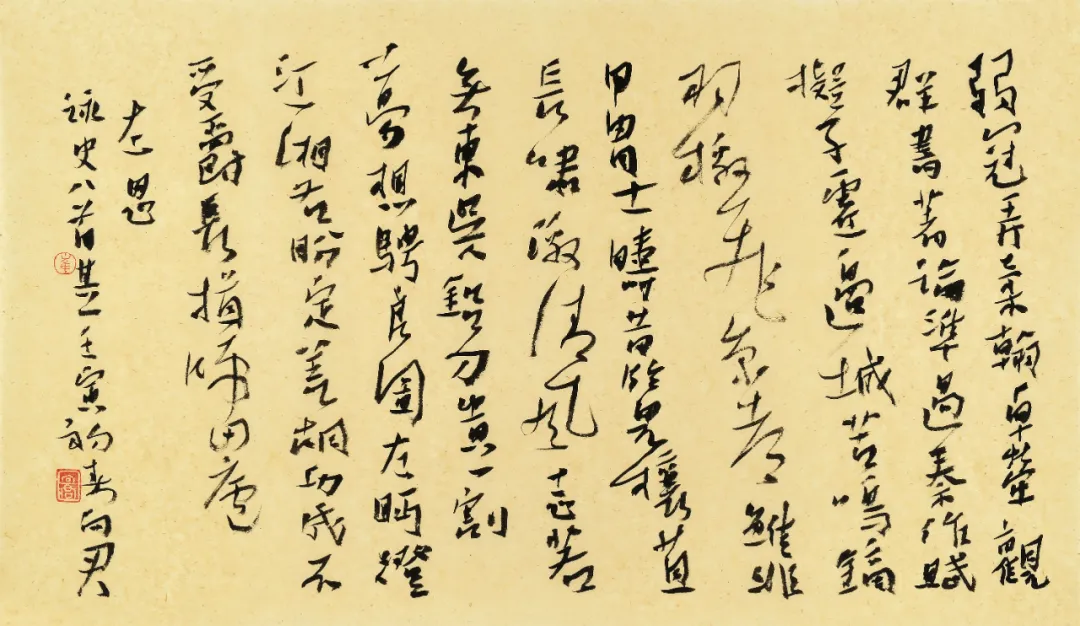 弱冠弄柔翰卓犖觀
群書著論準過秦作賦
擬子虛邊城苦鳴鏑
羽檄飛京都雖非
甲冑士疇昔覽穰苴
長嘯激清風志若
無東吳鉛刀貴一割
夢想騁良圖左眄澄
江湘右盼定羌胡功成不
受爵長揖歸田廬
左思
詠史八首其一壬寅初春向君